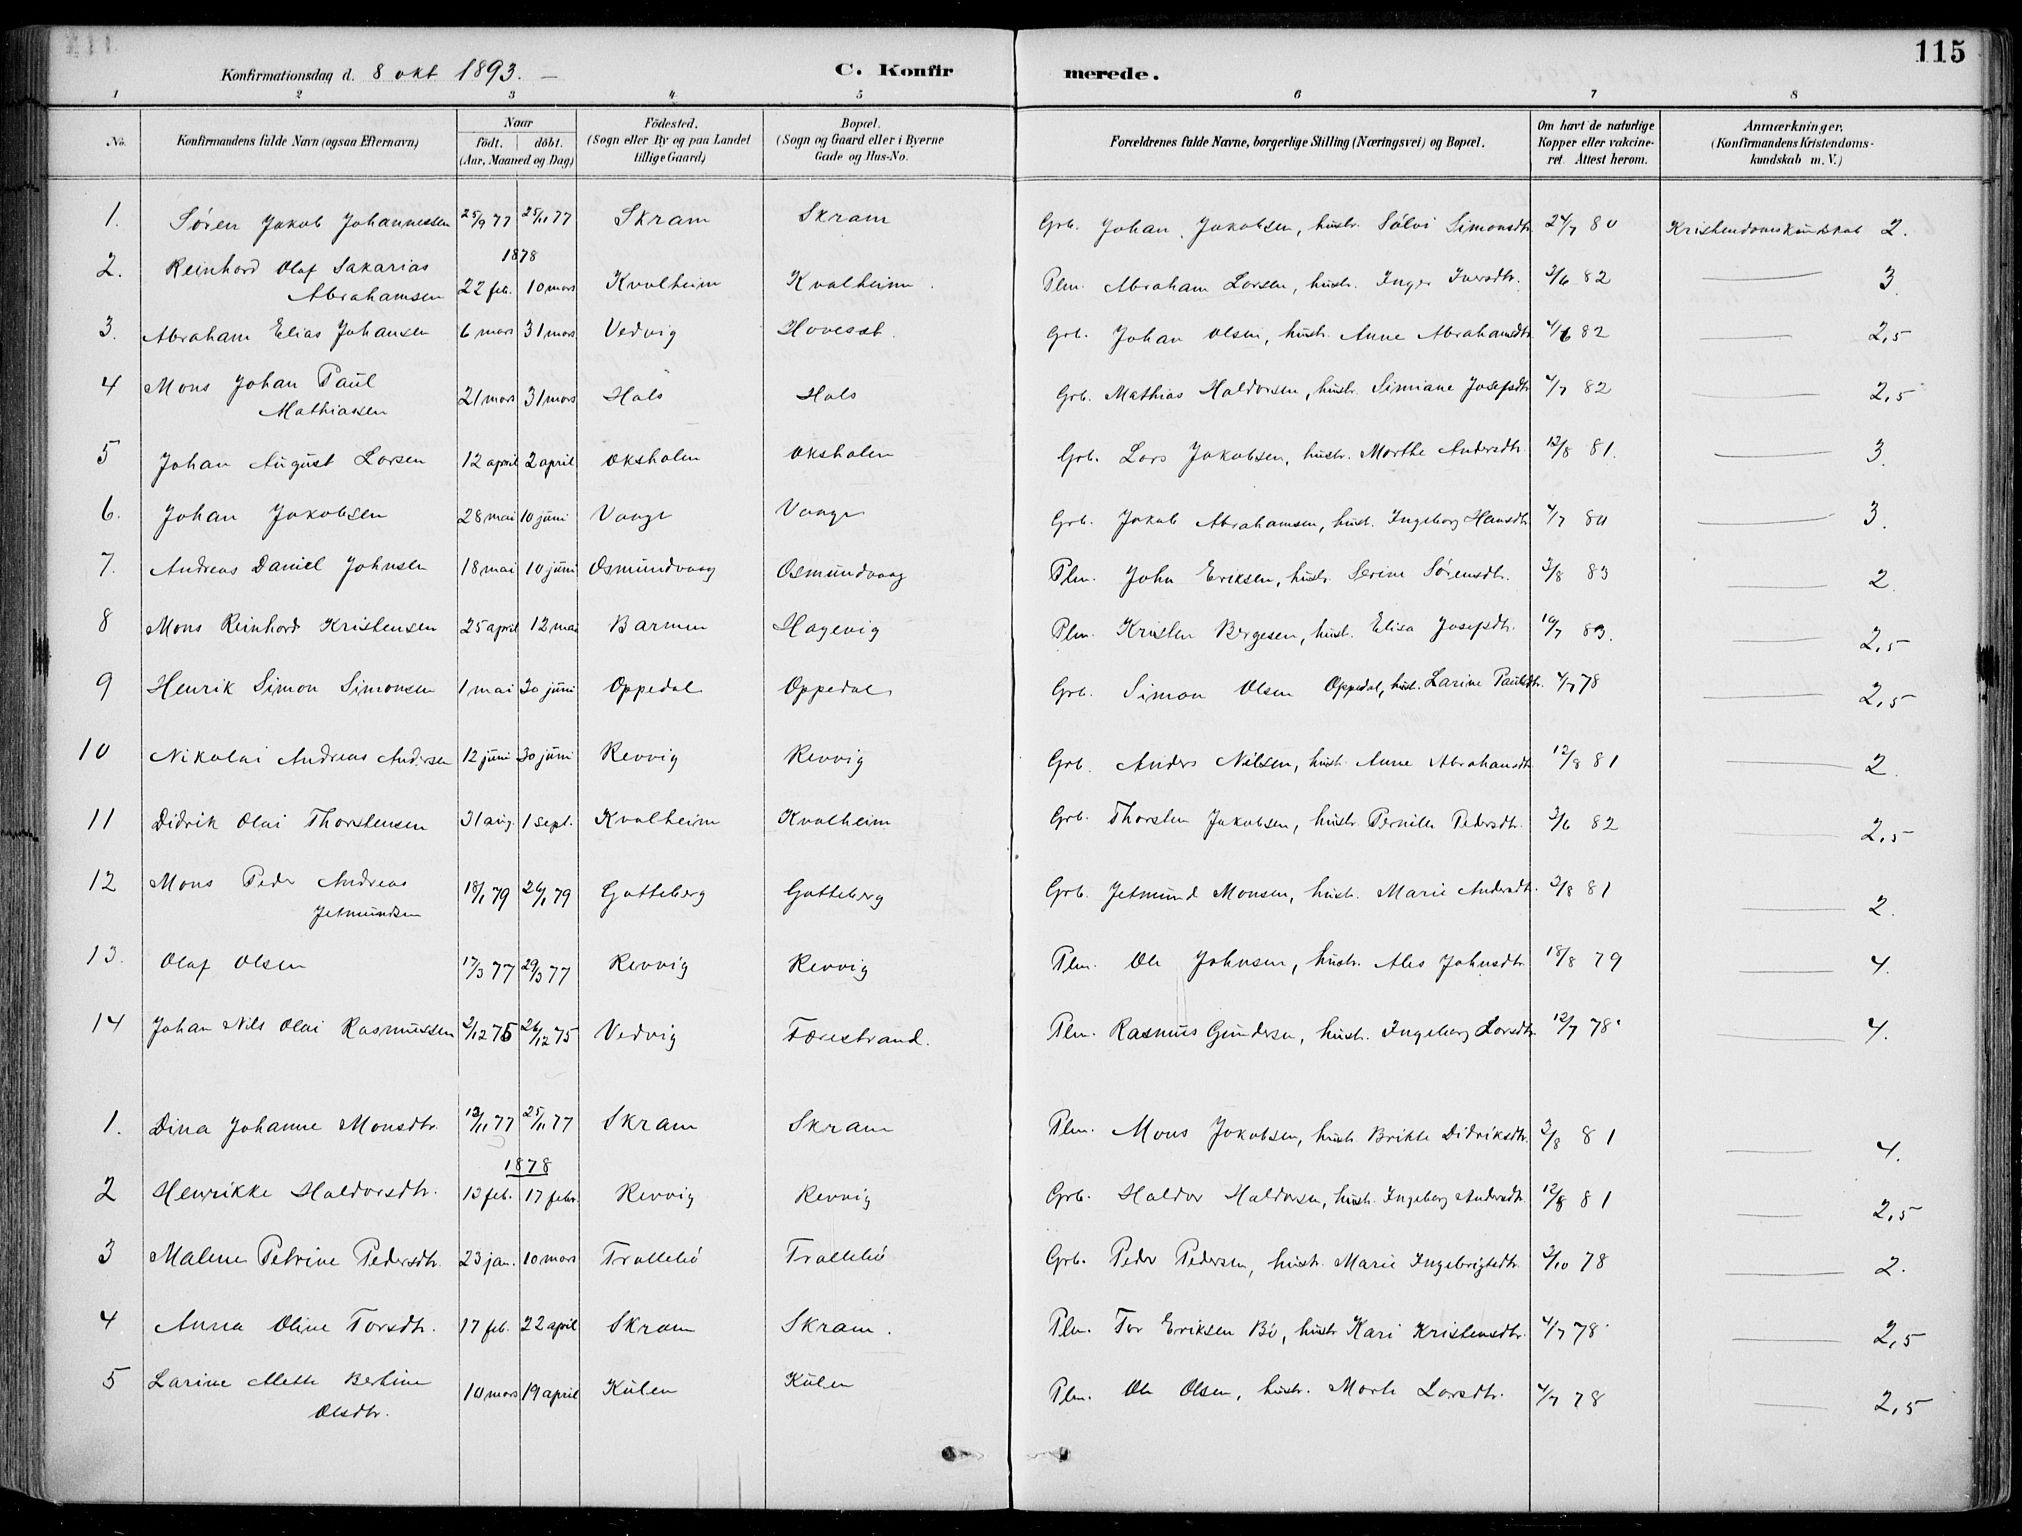 115
Konfirmationsdag d. 8 okt 1893. C. Konfir merede.
1 2 3 4 5 6 7 8
No. Konfirmandens fulde Navn (ogsaa Efternavn) Naar født. døbt. (Aar, Maaned og Dag) Födested. (Sogn eller By og paa Landet tillige Gaard) Bopæl. (Sogn og Gaard eller i Byerne Gade og Hus-No. Forældrenes fulde Navne, borgerlige Stilling (Næringsvei) og Bopæl. Om havt de naturlige Kopper eller vakcineret. Attest herom. Anmærkninger. (Konfirmandens Kristendomskundskab m. V.)
1. Søren Jakob Johannessen 25/9 77 25/11 77 Skram Skram Grb. Johan Jakobsen, hustr. Sølvi Simonsdtr. 24/7 80 Kristendomskundskab 2.
1878
2. Reinhard Olaf Sakarias
Abrahamsen 22 feb. 10 mars Kvalheim Kvalheim. Plm. Abraham Larsen, hustr. Inger Iversdtr. 3/6 82 — 3.
3. Abraham Elias Johansen 6 mars 31 mars Vedvig Hovesæt. Grb. Johan Olsen, hustr. Anne Abrahamsdtr. 82 — 2,5
4 Mons Johan Paul
Mathiassen 21 mars 31 mars Hals Hals Grb. Mathias Haldorsen, hustr. Simiane Josefsdtr. 4/7 82 — 2,5
5 Johan August Larsen 12 april 2 april Oksholen Oksholen Grb. Lars Jakobsen, hustr. Marthe Andersdtr. 12/8 81. — 3.
6. Johan Jakobsen 28 mai 10 juni Vaage Vaage Grb. Jakob Abrahamsen, hust. Ingeborg Hansdtr. 4/7 80 — 3.
7. Andreas Daniel Johnsen 18 mai 10 juni Osmundvaag Osmundvaag Plm. John Eriksen, hustr. Serine Sørensdtr. 3/8 83 — 2.
8 Mons Reinhard Kristensen 25 april 12 mai Barmen Hagevig Plm. Kristen Børgesen, hust. Elisa Josefsdtr. 10/7 83. — 2,5
9 Henrik Simon Simonsen 1 mai 30 juni Oppedal Oppedal Grb. Simon Olsen Oppedal, hust. Larine Paulsdtr. 4/7 78 — 2,5
10 Nikolai Andreas Andersen 12 juni 30 juni Revvig Revvig Grb. Anders Nilsen, hustr. Anne Abrahamsdtr. 12/8 81 — 2.
11 Didrik Olai Thorstensen 31 aug. 1 sept. Kvalheim Kvalheim Grb. Thorsten Jakobsen, hustr. Pernille Pedersdtr. 3/6 82 — 2,5
12 Mons Peder Andreas
Jetmundsen 18/1 79 26/1 79 Gotteberg Gotteberg Grb. Jetmund Monsen, hustr. Marie Andersdtr. 3/8 81 — 2.
13. Olaf Olsen 17/3 77 29/3 77 Revvig Revvig Plm. Ole Johnsen, hustr. Ales Johnsdtr. 18/8 79 — 4.
14 Johan Nils Olai Rasmussen 2/12 75 26/12 75 Vedvig Færestrand. Plm. Rasmus Gundersen, hustr. Ingeborg Larsdtr. 12/7 78 — 4.
1. Dina Johanne Monsdtr. 12/11 77 25/11 77 Skram Skram Plm. Mons Jakobsen, hustr. Brithe Didriksdtr. 3/8 81 — 4.
1878
2 Henrikke Haldorsdtr. 13 feb. 17 febr. Revvig Revvig Grb. Haldor Haldorsen, hustr. Ingeborg Andersdtr. 12/8 81 — 2,5
3 Malene Petrine Pedersdtr. 23 jan. 10 mars Trollebø Trollebø Grb. Peder Pedersen, hustr. Marie Ingebrigtsdtr. 2/10 78 — 2.
4 Anna Oline Torsdtr. 17 feb. 22 april Skram Skram. Plm. Tor Eriksen Bø, hustr Kari Kristensdtr. 4/7 78 — 2,5
5 Larine Mette Bertine
Olsdtr. 10 mars 19 april Kulen Kulen Plm. Ole Olsen, hustr. Marte Larsdtr. 4/7 78 — 2,5